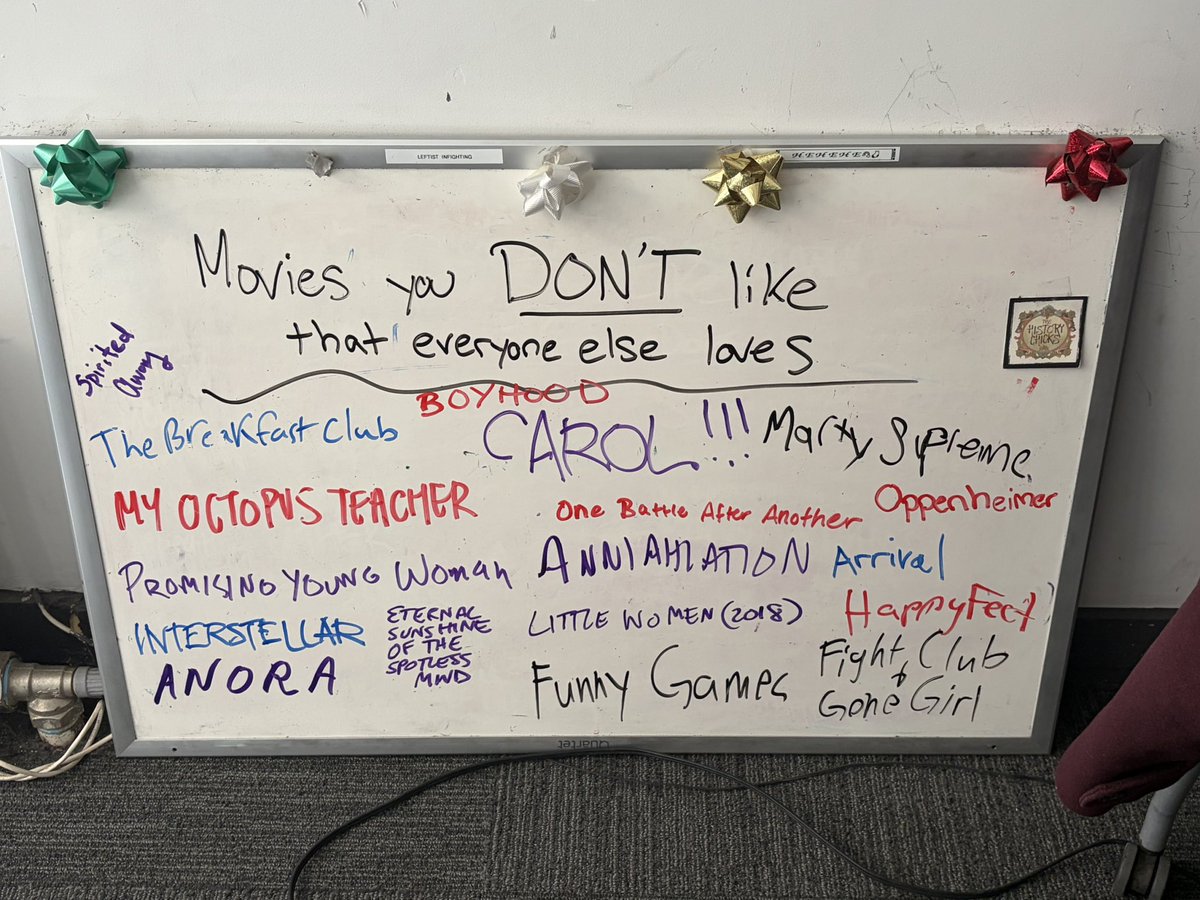 LEFTIST INFIGHTING
HEHEHE
Movies you DON'T like
that everyone else loves
THE HISTORY CHICKS
Spirited
Away
BOYHOOD
The Breakfast Club
CAROL!!!
Marty Supreme
MY OCTOPUS TEACHER
One Battle After Another
Oppenheimer
PROMISING YOUNG WOMAN
ANNIAHLATION
Arrival
INTERSTELLAR
ETERNAL
SUNSHINE
OF THE
SPOTLESS
MIND
LITTLE WOMEN (2018)
Happy Feet
ANORA
Funny Games
Fight Club
+
Gone Girl
Quartet